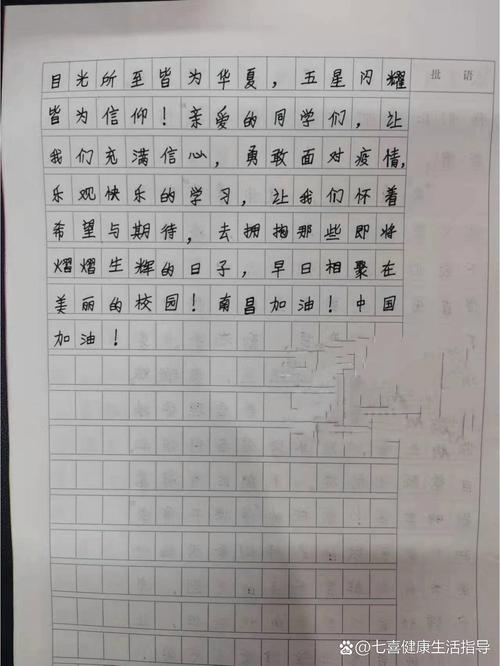 目光所至皆为华夏，五星闪耀
皆为信仰！亲爱的同学们，让
我们充满信心，勇敢面对疫情，
乐观快乐的学习，让我们怀着
希望与期待，去拥抱那些即将
熠熠生辉的日子，早日相聚在
美丽的校园！南昌加油！中国
加油！
批语
@七喜健康生活指导